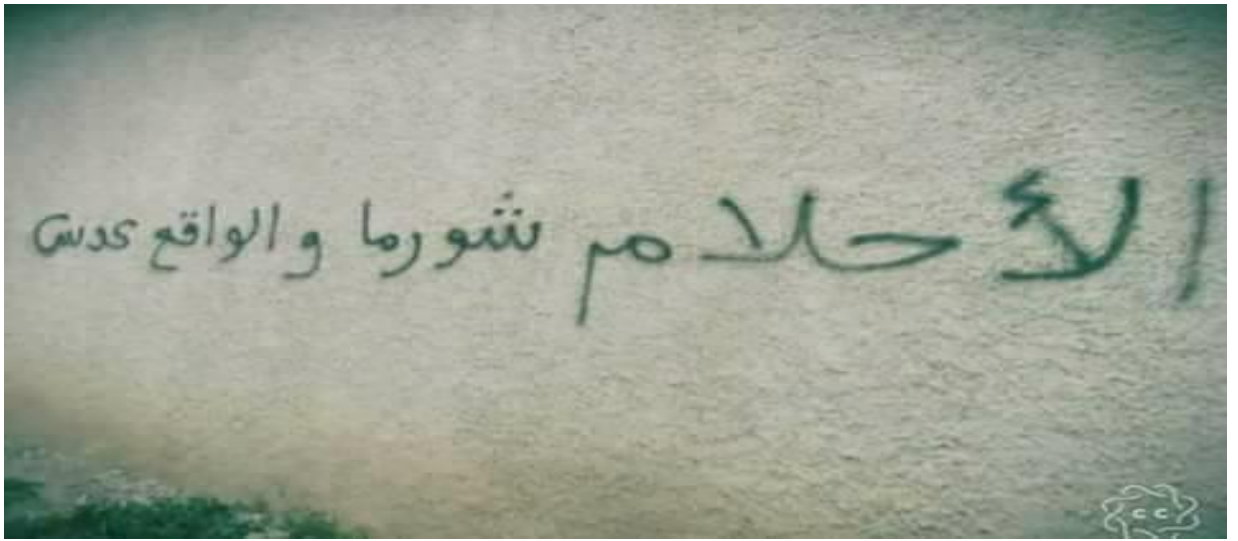 الأحلام شورما و الواقع عدس
cc